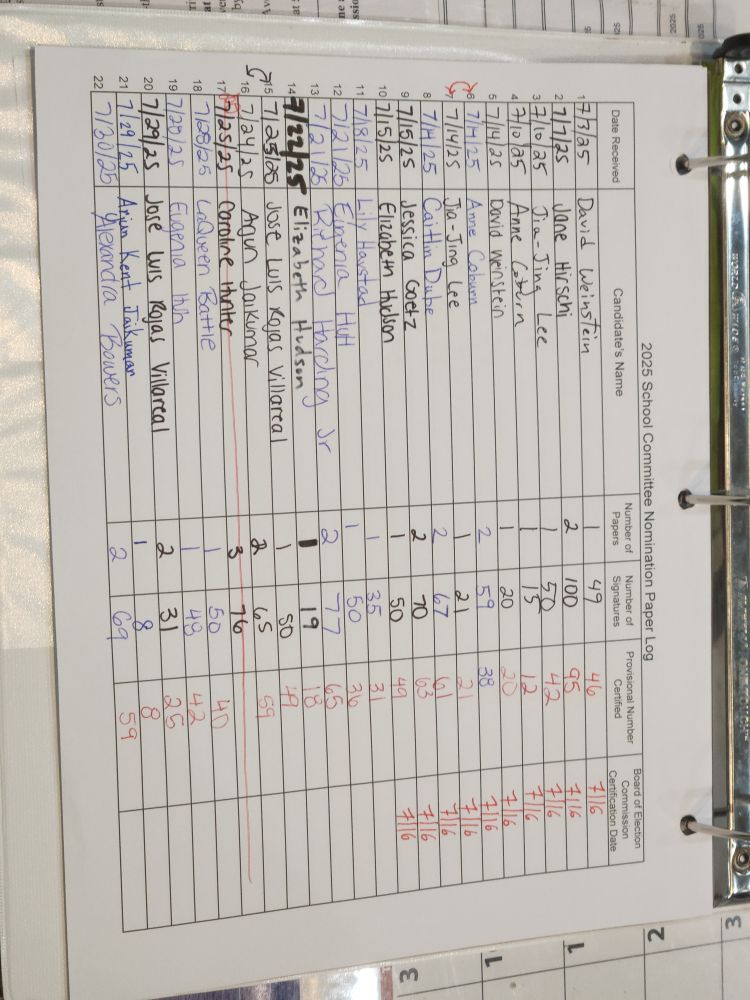 2025 School Committee Nomination Paper Log
Date Received Candidate's Name Number of Papers Number of Signatures Provisional Number Certified Board of Election Commission Certification Date
1 7/3/25 David Weinstein 1 49 46 7/16
2 7/7/25 Jane Hirschi 2 100 95 7/16
3 7/10/25 Jia-Jing Lee 1 50 42 7/16
4 7/10/25 Anne Coburn 1 15 12 7/16
5 7/14/25 David Weinstein 1 20 20 7/16
6 7/14/25 Anne Coburn 2 59 38 7/16
7 7/14/25 Jia-Jing Lee 1 21 21 7/16
8 7/14/25 Caitlin Dube 2 67 61 7/16
9 7/15/25 Jessica Goetz 2 70 63 7/16
10 7/15/25 Elizabeth Hudson 1 50 49 7/16
11 7/18/25 Lily 1 35 31
12 7/21/25 1 50 36
13 7/21/25 Richard Harding Jr 2 77 65
14 7/22/25 Elizabeth Hudson 1 19 18
15 7/23/25 Jose Luis Rojas Villareal 1 50 49
16 7/24/25 Arjun Jaikumar 2 65 59
17 7/25/25 Caroline Hunter 3 76
18 7/28/25 LaQueen Battle 1 50 40
19 7/28/25 Eugenia Huh 1 48 42
20 7/29/25 Jose Luis Rojas Villareal 2 31 25
21 7/29/25 Arjun Kent Jaikumar 1 8 8
22 7/30/25 Alexandra Bowers 2 69 59